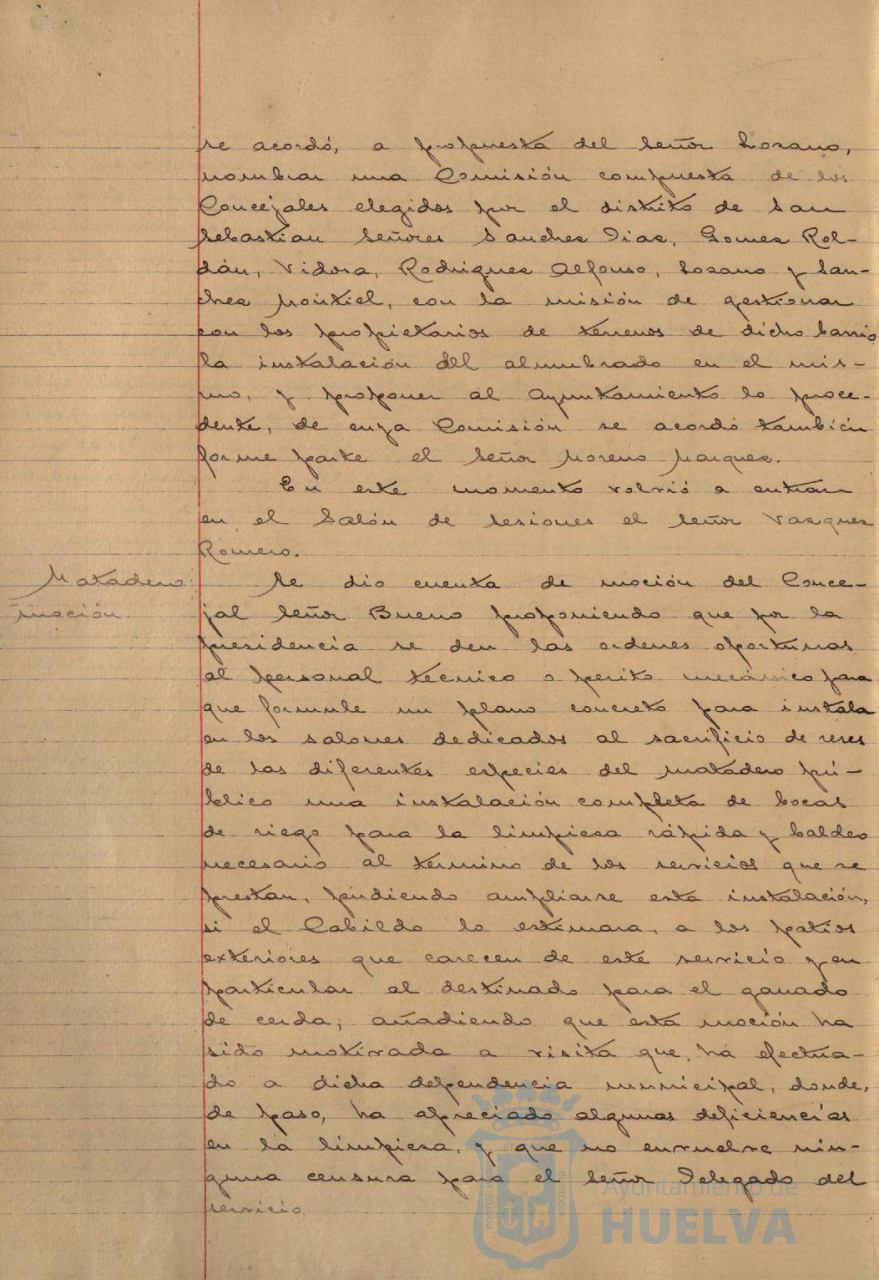 se acordó, a propuesta del señor Lozano,
nombrar una Comisión compuesta de los
Concejales elegidos por el distrito de San
Sebastian Señores Sanchez Diaz, Gomez Rol-
dán, Vidosa, Rodriguez Alfonso, Lozano y San-
chez Montiel, con la misión de gestionar
con los propietarios de terrenos de dicho barrio
la instalación del alumbrado en el mis-
mo, y proponer al Ayuntamiento lo proce-
dente, de cuya Comisión se acordó también
forme parte el Señor Moreno Marquez.
En este momento volvió a entrar
en el Salón de sesiones el señor Vazquez
Romero.
Matadero
moción
Se dio cuenta de moción del Conce-
jal Señor Bueno proponiendo que por la
presidencia se den las ordenes oportunas
al personal técnico o perito mecánico para
que formule un plano concreto para instala
en los salones dedicados al sacrificio de reses
de las diferentes especies del matadero pú-
blico una instalación completa de bocas
de riego para la limpieza rápida y baldeo
necesario al termino de los servicios que se
prestan, pudiendo ampliarse esta instalación,
si el Cabildo lo estimara, a los patios
exteriores que carecen de este servicio y en
particular al destinado para el ganado
de cerda; añadiendo que esta moción ha
sido motivada a visita que ha efectua-
do a dicha dependencia municipal, donde,
de paso, ha apreciado algunas deficiencias
en la limpieza, y que no envuelve nin-
guna censura para el Señor Delegado del
servicio.
Ayuntamiento de
HUELVA